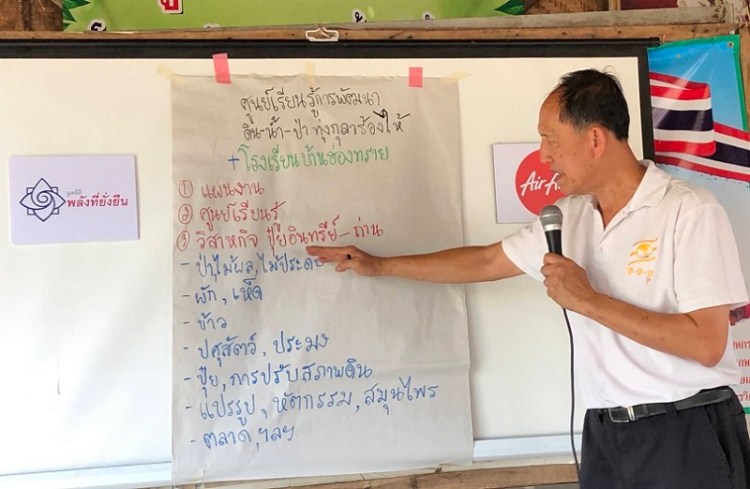 ศูนย์เรียนรู้การพัฒนา
ดิน-น้ำ-ป่า ทุ่งกุลาร้องไห้
+ โรงเรียนบ้านฮ่องทราย
① แผนงาน
② ศูนย์เรียนรู้
③ วิสาหกิจ ปุ๋ยอินทรีย์-ถ่าน
- ป่า,ไม้ผล,ไม้ประดับ
- ผัก, เห็ด
- ข้าว
- ปศุสัตว์, ประมง
- ปุ๋ย, การปรับสภาพดิน
- แปรรูป, หัตกรรม, สมุนไพร
- ตลาด, ฯลฯ
มูลนิธิ
พลังที่ยั่งยืน